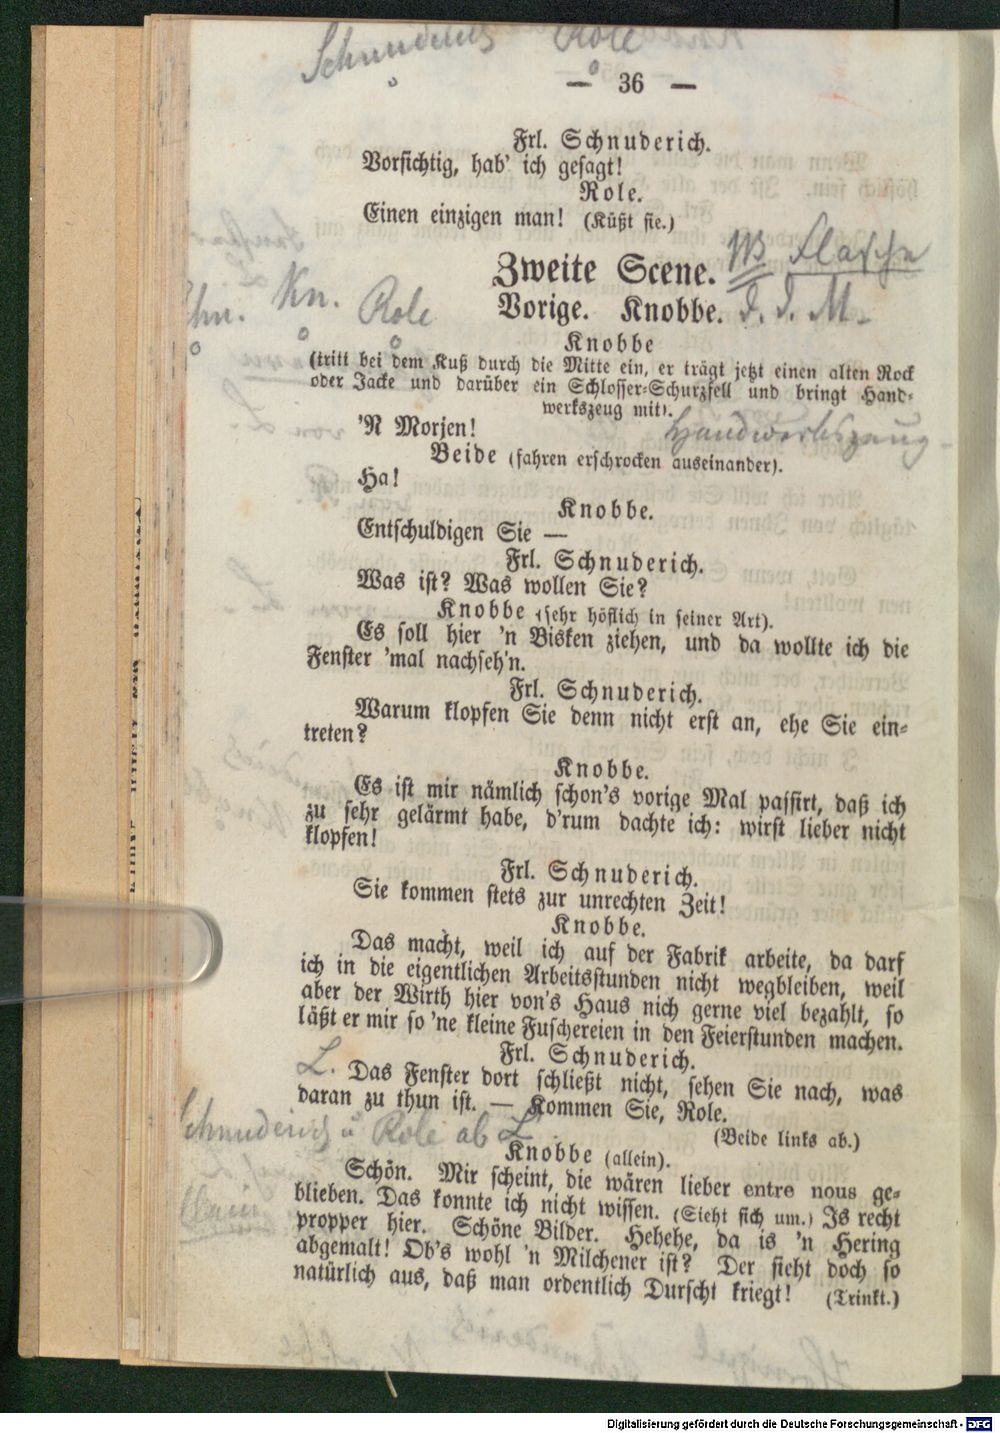 Schnuderich Role
— 36 —
Frl. Schnuderich.
Vorsichtig, hab' ich gesagt!
Role.
Einen einzigen man! (Küßt sie.)
Zweite Scene. Flasche
Vorige. Knobbe. d. d. M.
Kn. Role
Knobbe
(tritt bei dem Kuß durch die Mitte ein, er trägt jetzt einen alten Rock
oder Jacke und darüber ein Schlosser-Schurzfell und bringt Hand-
werkszeug mit).
'N Morjen! Handwerkszeug
Beide (fahren erschrocken auseinander).
Ha!
Knobbe.
Entschuldigen Sie —
Frl. Schnuderich.
Was ist? Was wollen Sie?
Knobbe (sehr höflich in seiner Art).
Es soll hier 'n Bisken ziehen, und da wollte ich die
Fenster 'mal nachseh'n.
Frl. Schnuderich.
Warum klopfen Sie denn nicht erst an, ehe Sie ein-
treten?
Knobbe.
Es ist mir nämlich schon's vorige Mal passirt, daß ich
zu sehr gelärmt habe, d'rum dachte ich: wirst lieber nicht
klopfen!
Frl. Schnuderich.
Sie kommen stets zur unrechten Zeit!
Knobbe.
Das macht, weil ich auf der Fabrik arbeite, da darf
ich in die eigentlichen Arbeitsstunden nicht wegbleiben, weil
aber der Wirth hier von's Haus nich gerne viel bezahlt, so
läßt er mir so 'ne kleine Fuschereien in den Feierstunden machen.
Frl. Schnuderich.
L. Das Fenster dort schließt nicht, sehen Sie nach, was
daran zu thun ist. — Kommen Sie, Role.
Schnuderich u Role ab L (Beide links ab.)
Knobbe (allein).
Schön. Mir scheint, die wären lieber entre nous ge-
blieben. Das konnte ich nicht wissen. (Sieht sich um.) Is recht
propper hier. Schöne Bilder. Hehehe, da is 'n Hering
abgemalt! Ob's wohl 'n Milchener ist? Der sieht doch so
natürlich aus, daß man ordentlich Durscht kriegt! (Trinkt.)
Digitalisierung gefördert durch die Deutsche Forschungsgemeinschaft - DFG